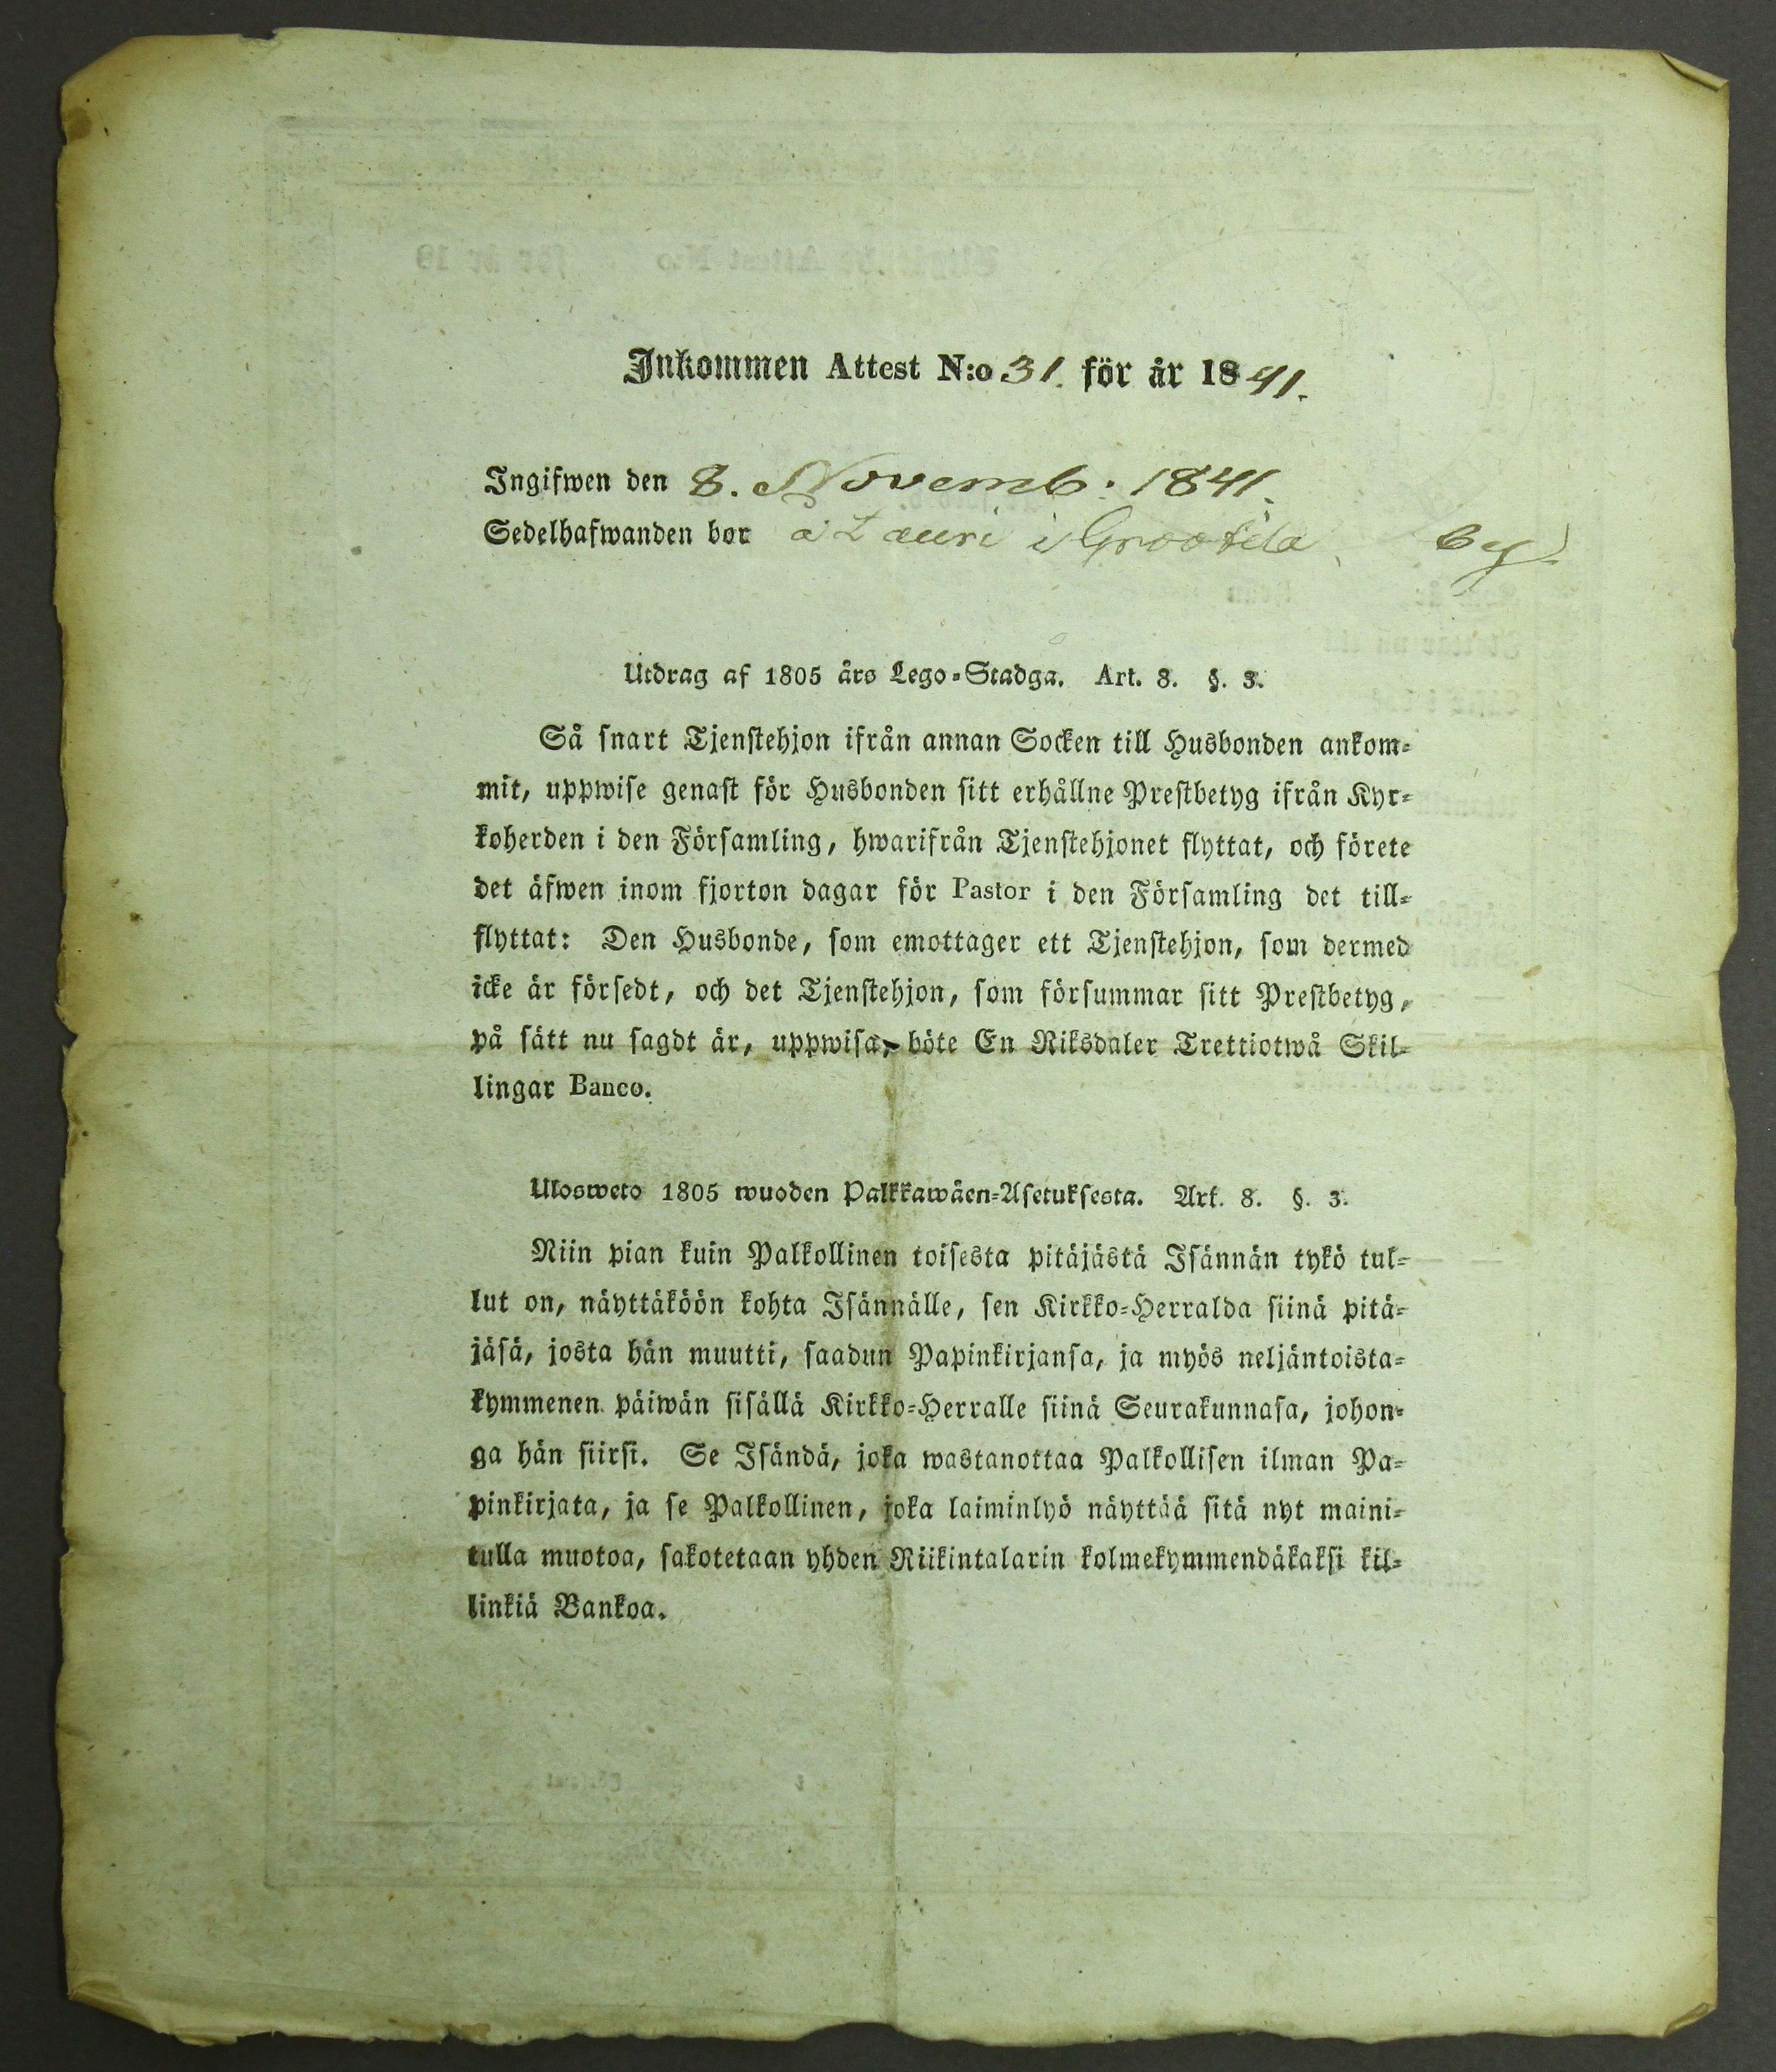 Inkommen Attest N:o 31. för år 1841.
Ingifwen den 8. Novemb: 1841.
Sedelhafwanden bor å Lauri i by
Utdrag af 1805 års Lego-Stadga. Art. 8. §. 3.
Så snart Tjenstehjon ifrån annan Socken till Husbonden ankom-
mit, uppwise genast för Husbonden sitt erhållne Prestbetyg ifrån Kyr-
koherden i den Församling, hwarifrån Tjenstehjonet flyttat, och förete
det äfwen inom fjorton dagar för Pastor i den Församling det till-
flyttat: Den Husbonde, som emottager ett Tjenstehjon, som dermed
icke är försedt, och det Tjenstehjon, som försummar sitt Prestbetyg,
på sätt nu sagdt är, uppwisa, böte En Riksdaler Trettiotwå Skil-
lingar Banco.
Ulosweto 1805 wuoden Palkkawäen-Asetuksesta. Art. 8. §. 3.
Niin pian kuin Palkollinen toisesta pitäjästä Isännän tykö tul-
lut on, näyttäköön kohta Isännälle, sen Kirkko-Herralda siinä pitä-
jäsä, josta hän muutti, saadun Papinkirjansa, ja myös neljäntoista-
kymmenen päiwän sisällä Kirkko-Herralle siinä Seurakunnasa, johon-
ga hän siirsi. Se Isändä, joka wastanottaa Palkollisen ilman Pa-
pinkirjata, ja se Palkollinen, joka laiminlyö näyttää sitä nyt maini-
tulla muotoa, sakotetaan yhden Riikintalarin kolmekymmendäkaksi kil-
linkiä Bankoa.